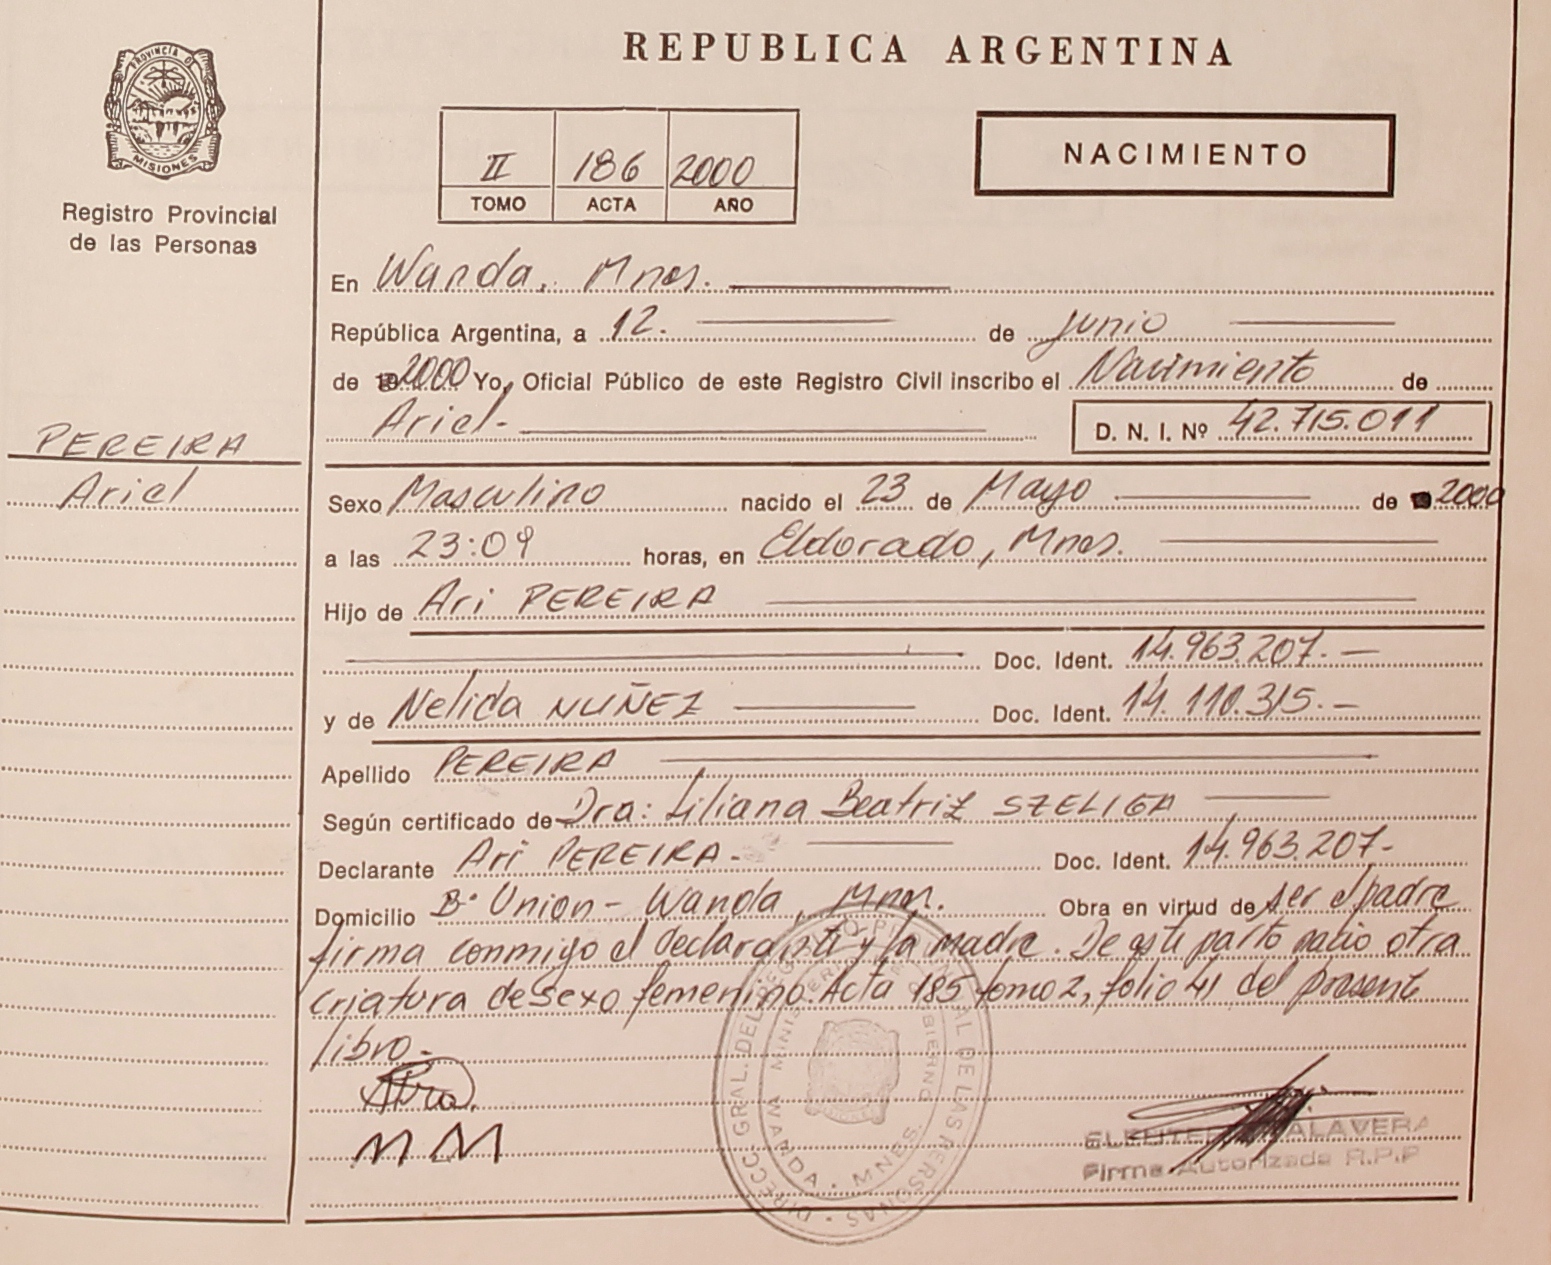 REPUBLICA ARGENTINA
PROVINCIA DE
MISIONES
Registro Provincial
de las Personas
II 186 2000
TOMO ACTA AÑO
NACIMIENTO
En Wanda, Mnes.
República Argentina, a 12. de junio
de 2000 Yo, Oficial Público de este Registro Civil inscribo el Nacimiento de
Ariel.- D. N. I. Nº 42.715.011
PEREIRA
Ariel
Sexo Masculino nacido el 23 de Mayo de 2000
a las 23:09 horas, en Eldorado, Mnes.
Hijo de Ari PEREIRA
Doc. Ident. 14.963.207.-
y de Nelida NUÑEZ Doc. Ident. 14.110.315.-
Apellido PEREIRA
Según certificado de Dra: Liliana Beatriz SZELIGA
Declarante Ari PEREIRA.- Doc. Ident. 14.963.207-
Domicilio Bº Union - Wanda, Mnes. Obra en virtud de ser el padre
firma conmigo el declarante y la madre. De este parto nacio otra
criatura de sexo femenino. Acta 185 tomo 2, folio 41 del presente
libro.-
DIRECC. GRAL. DEL REGISTRO PROVINCIAL DE LAS PERSONAS
MINISTERIO DE GOBIERNO
WANDA - MNES.
TALAVERA
Firma Autorizada R.P.P